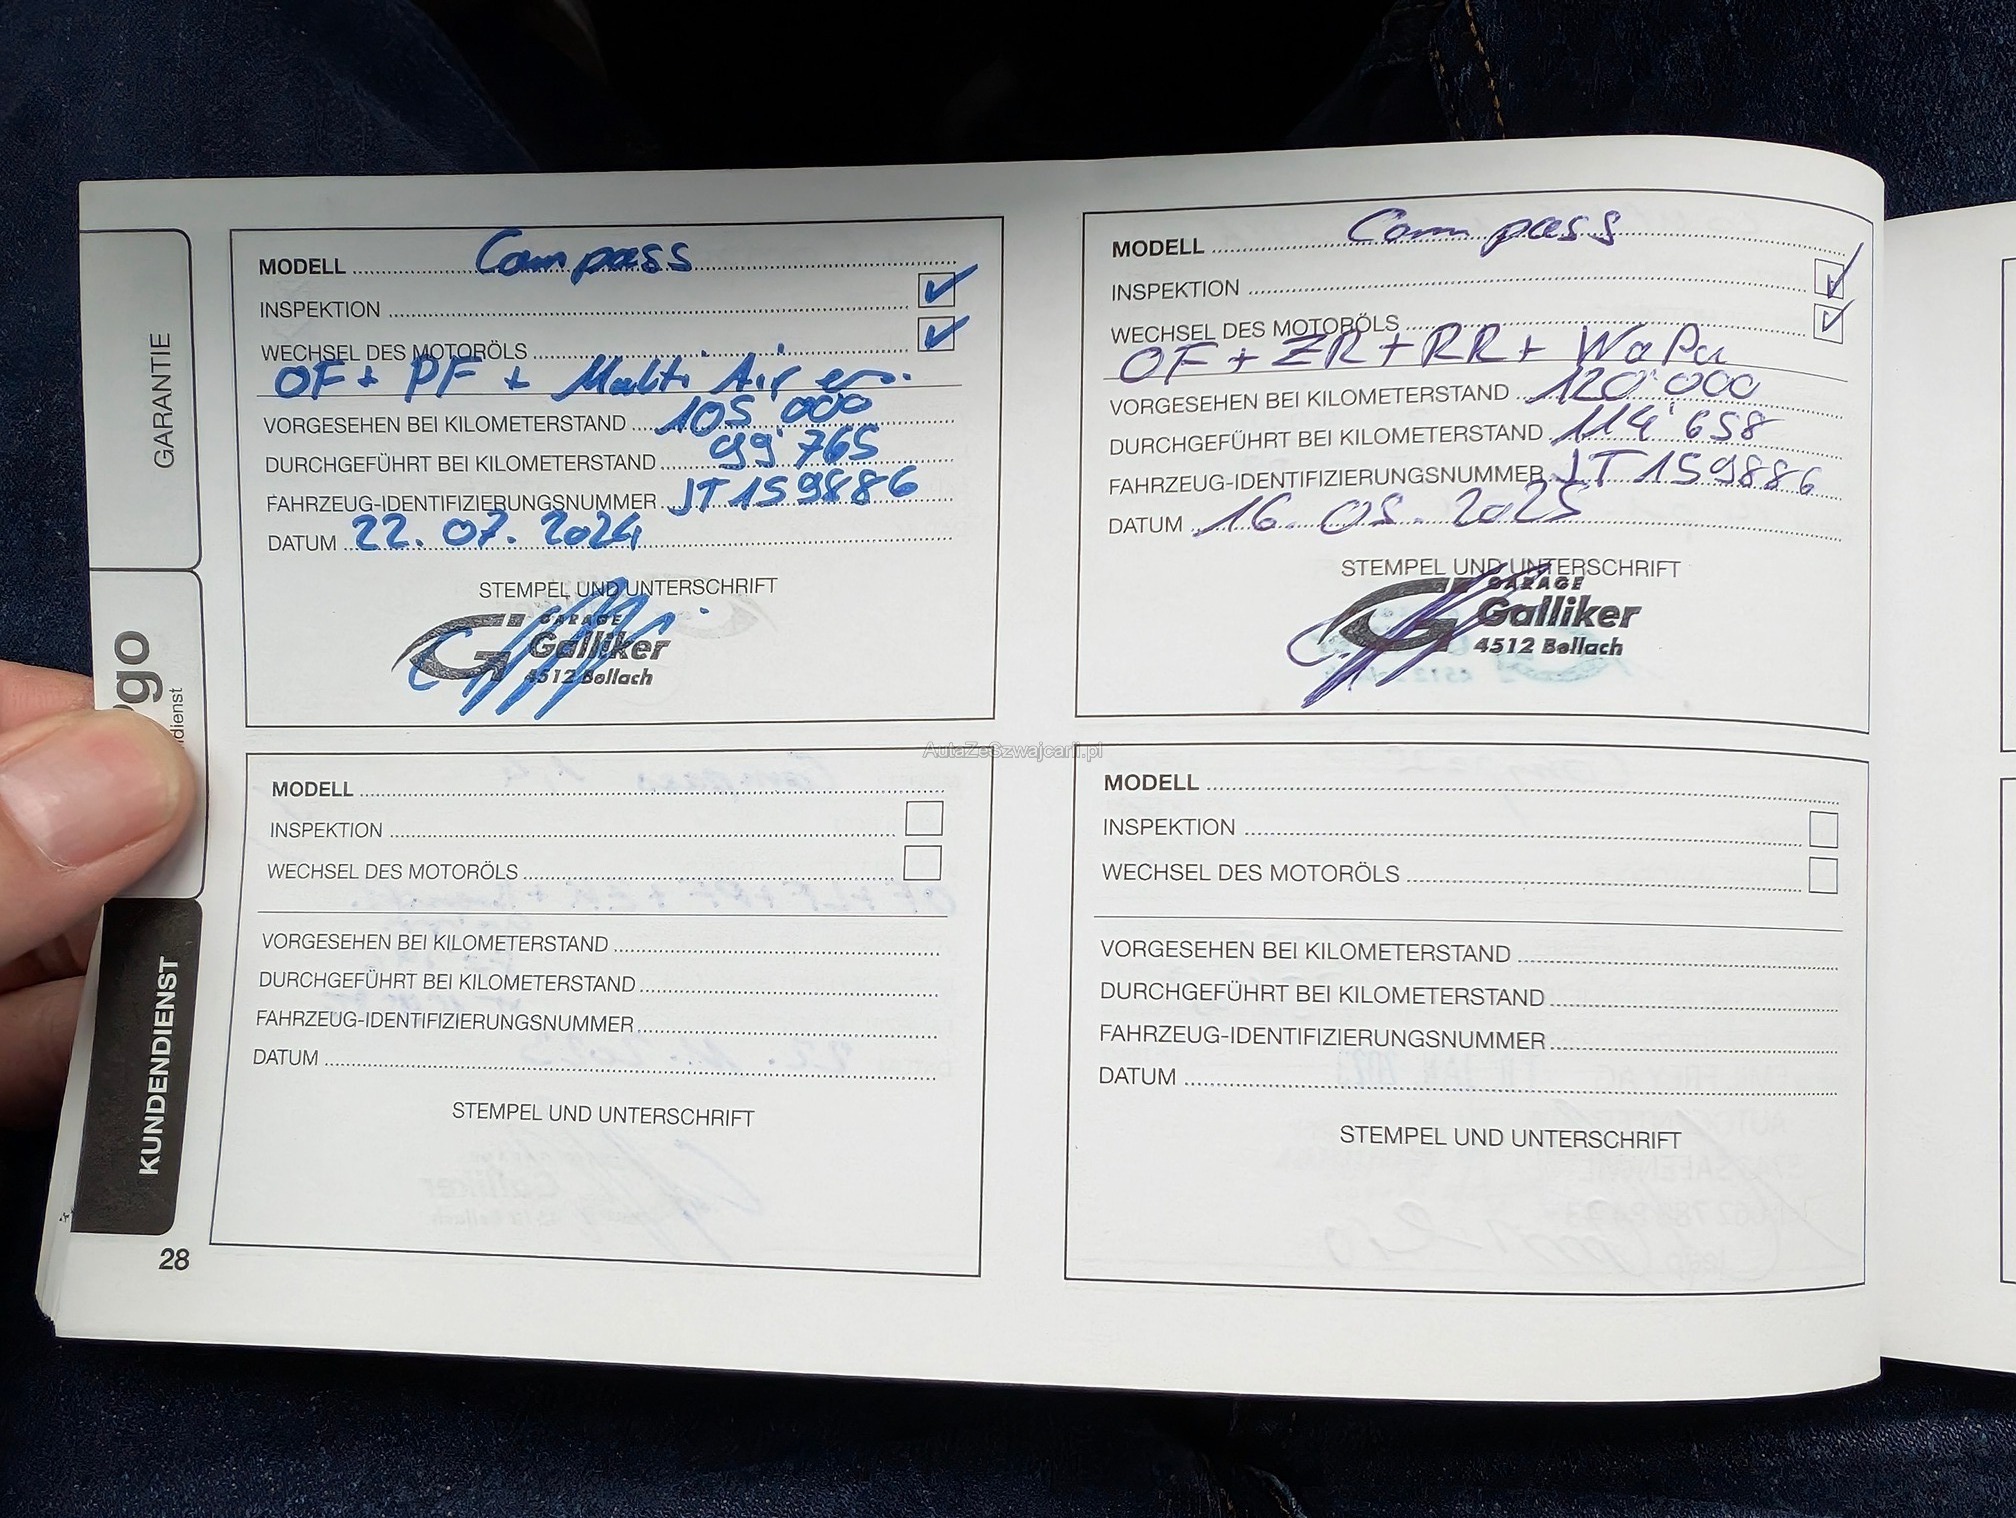 GARANTIE
go
dienst
KUNDENDIENST
28
MODELL Compass
INSPEKTION ✓
WECHSEL DES MOTORÖLS ✓
OF + PF + Multi Air
VORGESEHEN BEI KILOMETERSTAND 105'000
DURCHGEFÜHRT BEI KILOMETERSTAND 99'765
FAHRZEUG-IDENTIFIZIERUNGSNUMMER JT159886
DATUM 22.07.2024
STEMPEL UND UNTERSCHRIFT
GARAGE
Galliker
4512 Bellach
MODELL Compass
INSPEKTION ✓
WECHSEL DES MOTORÖLS ✓
OF + ZR + RR + WaPu
VORGESEHEN BEI KILOMETERSTAND 120'000
DURCHGEFÜHRT BEI KILOMETERSTAND 114'658
FAHRZEUG-IDENTIFIZIERUNGSNUMMER JT159886
DATUM 16.05.2025
STEMPEL UND UNTERSCHRIFT
GARAGE
Galliker
4512 Bellach
AutaZeSzwajcarii.pl
MODELL
INSPEKTION
WECHSEL DES MOTORÖLS
VORGESEHEN BEI KILOMETERSTAND
DURCHGEFÜHRT BEI KILOMETERSTAND
FAHRZEUG-IDENTIFIZIERUNGSNUMMER
DATUM
STEMPEL UND UNTERSCHRIFT
MODELL
INSPEKTION
WECHSEL DES MOTORÖLS
VORGESEHEN BEI KILOMETERSTAND
DURCHGEFÜHRT BEI KILOMETERSTAND
FAHRZEUG-IDENTIFIZIERUNGSNUMMER
DATUM
STEMPEL UND UNTERSCHRIFT